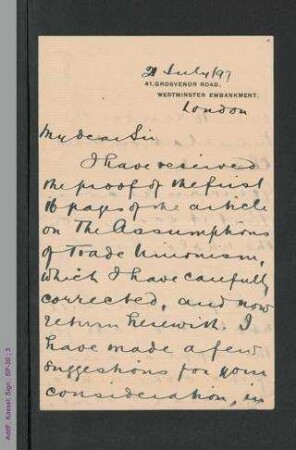 21 July/97
41, GROSVENOR ROAD,
WESTMINSTER EMBANKMENT.
London
My dear Sir
I have received
the proof of the first
16 pages of the article
on The Assumptions
of Trade Unionism,
which I have carefully
corrected, and now
return herewith. I
have made a few
suggestions for your
consideration, in
AddF, Kassel; Sign.: SP-39 ; 3